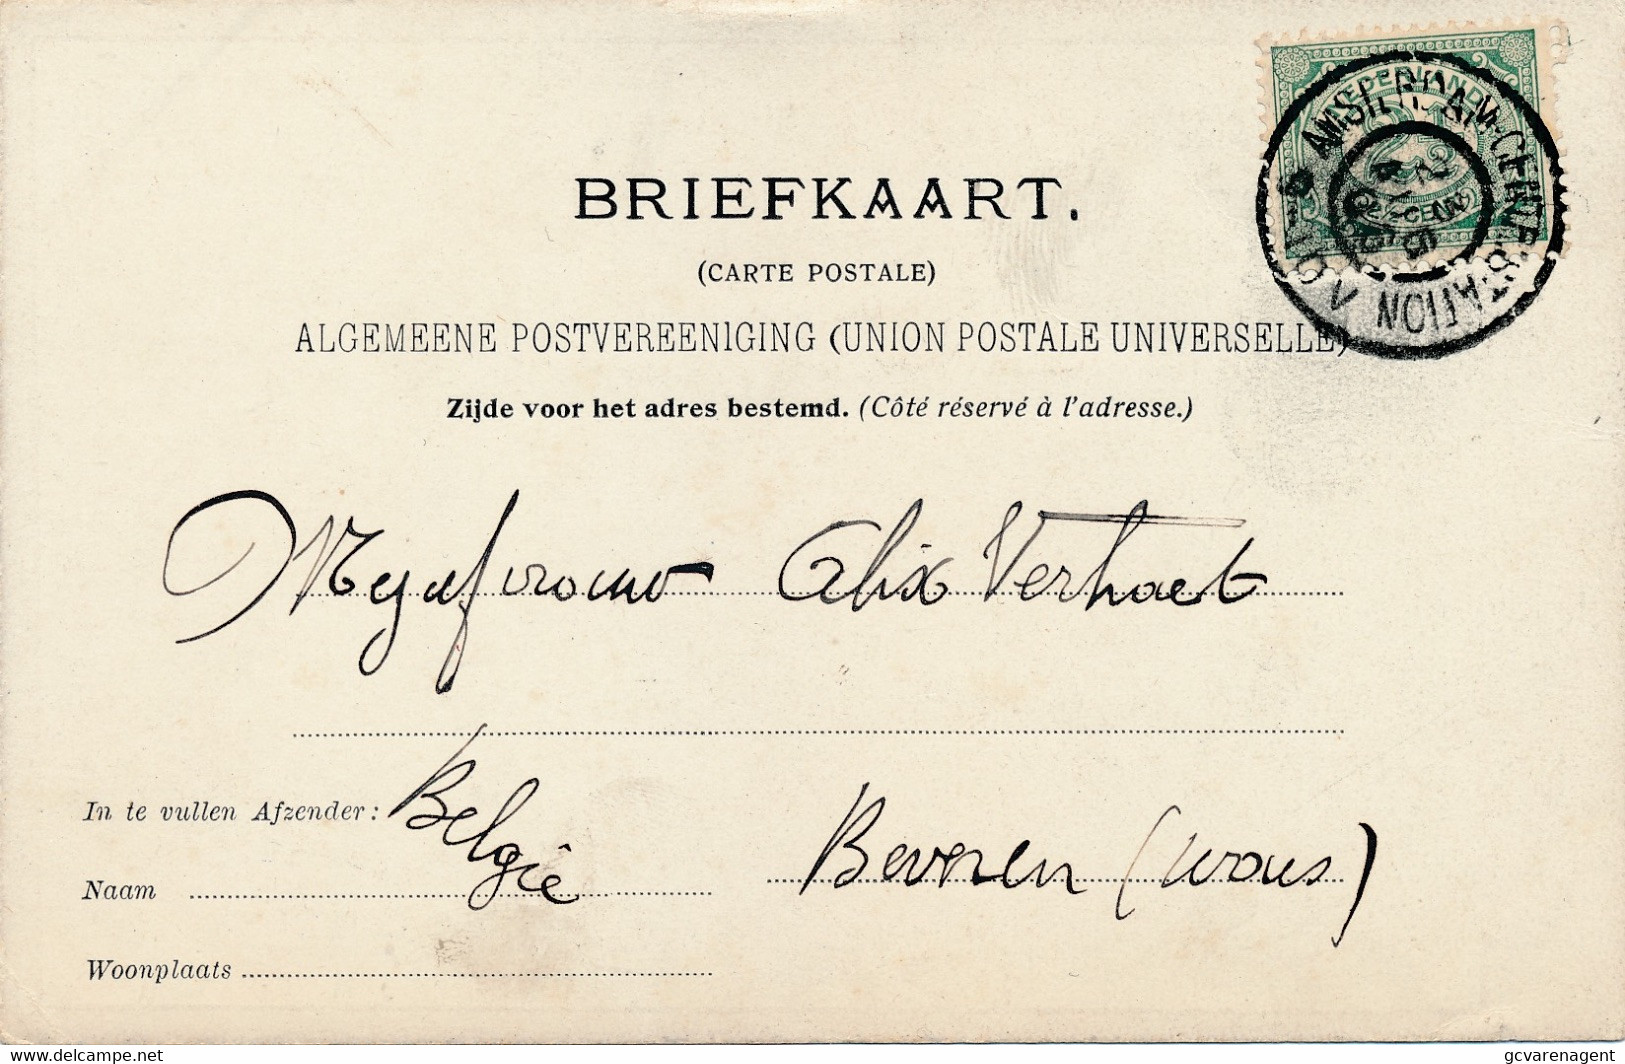 NEDERLAND
2½
CENT
AMSTERDAM-CENTR: STATION
BRIEFKAART.
(CARTE POSTALE)
ALGEMEENE POSTVEREENIGING (UNION POSTALE UNIVERSELLE)
Zijde voor het adres bestemd. (Côté réservé à l'adresse.)
Mejufvrouw Alix Verhaert
In te vullen Afzender:
België
Beveren (Waas)
Naam
Woonplaats
https://www.delcampe.net
gcvarenagent